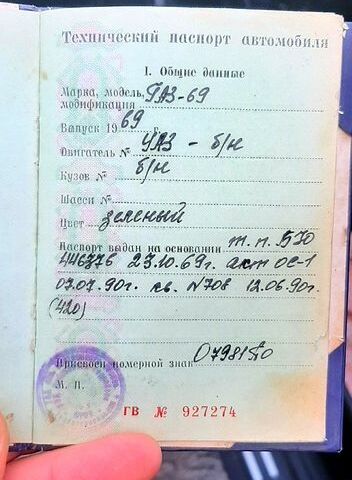 Технический паспорт автомобиля
I. Общие данные
Марка, модель, ГАЗ-69
модификация
Выпуск 19 69
Двигатель № УАЗ - б/н
Кузов № б/н
Шасси №
Цвет зеленый
Паспорт выдан на основании т.п. БЮ
446376 23.10.69г. акт ОС-1
07.07.90г. кв. №708 12.06.90г.
(420)
Присвоен номерной знак
М. П.
ГВ № 927274